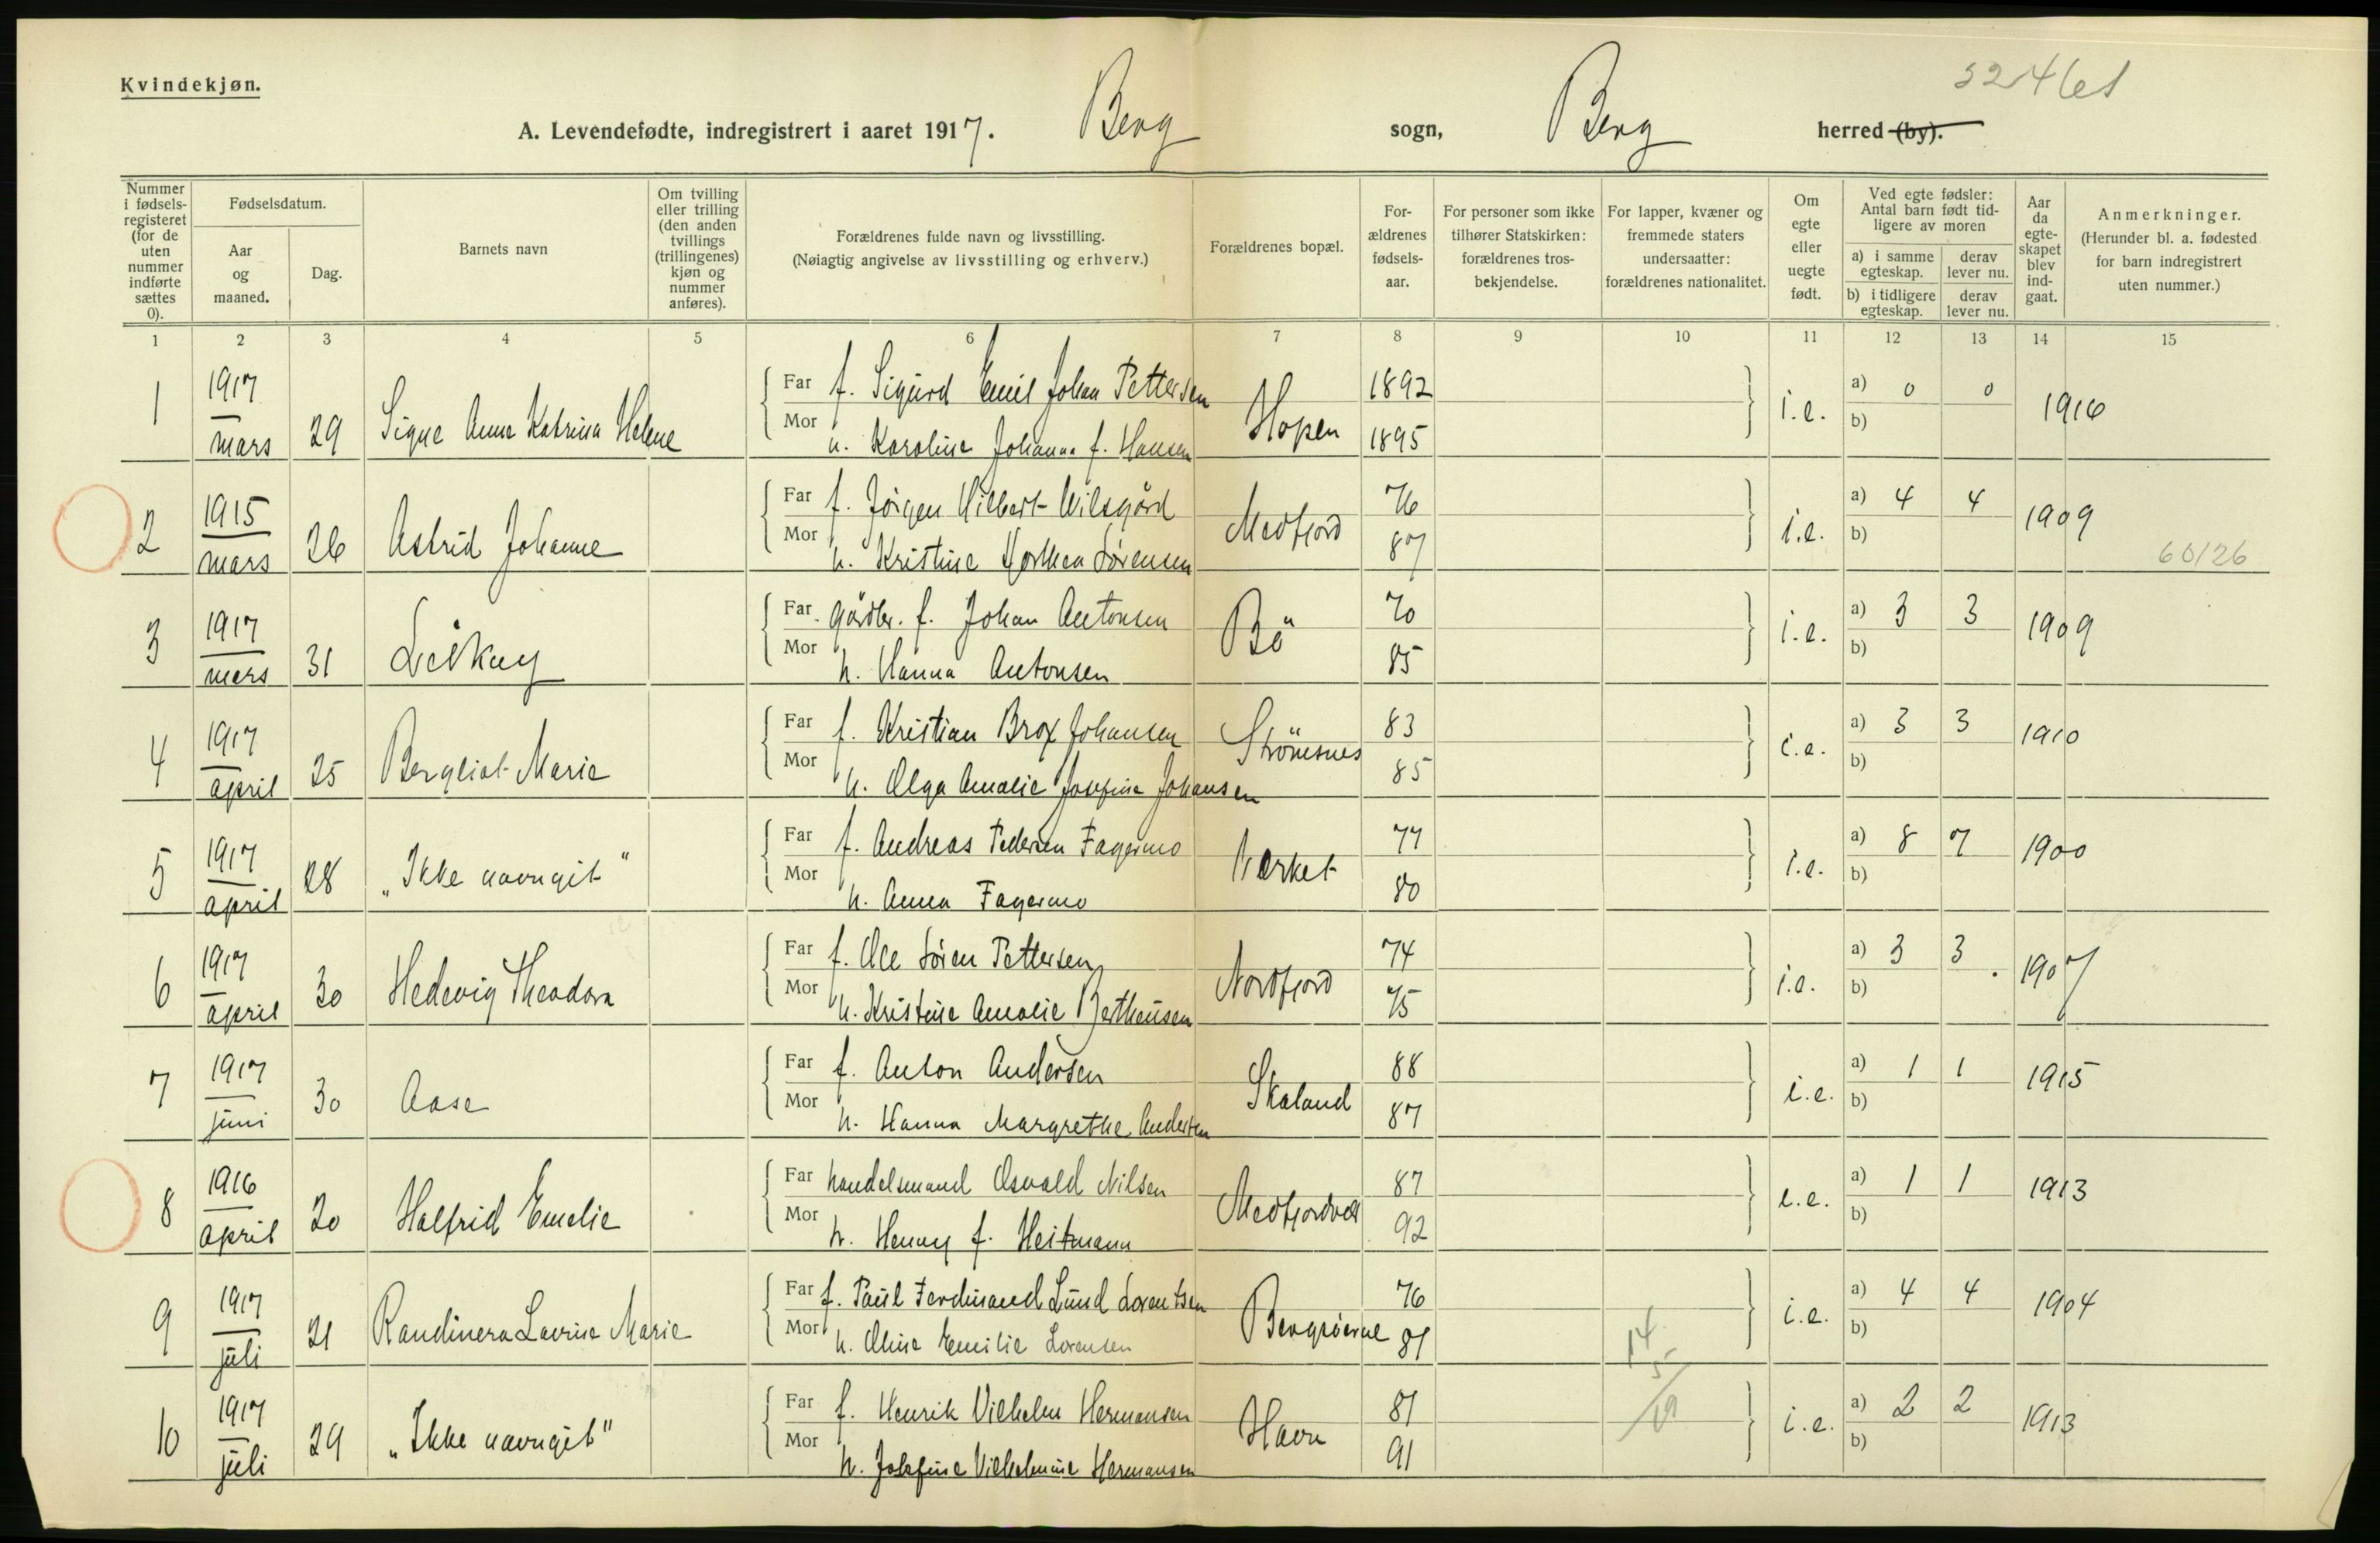 Kvindekjøn.
A. Levendefødte, indregistrert i aaret 1917. Berg sogn, Berg herred (by).
Nummer i fødsels-registeret (for de uten nummer indførte sættes 0).
Fødselsdatum.
Aar og maaned.
Dag.
Barnets navn
Om tvilling eller trilling (den anden tvillings (trillingenes) kjøn og nummer anføres).
Forældrenes fulde navn og livsstilling.
(Nøiagtig angivelse av livsstilling og erhverv.)
Forældrenes bopæl.
For-ældrenes fødsels-aar.
For personer som ikke tilhører Statskirken: forældrenes tros-bekjendelse.
For lapper, kvæner og fremmede staters undersaatter: forældrenes nationalitet.
Om egte eller uegte født.
Ved egte fødsler: Antal barn født tid-ligere av moren
a) i samme egteskap. derav lever nu.
b) i tidligere egteskap. derav lever nu.
Aar da egte-skapet blev ind-gaat.
Anmerkninger.
(Herunder bl. a. fødested for barn indregistrert uten nummer.)
1 2 3 4 5 6 7 8 9 10 11 12 13 14 15
1 1917 mars 29 Signe Anna Katrina Helene
Far f. Sigurd Emil Johan Pettersen Hopen 1892 i.e. a) 0 0 1916
Mor h. Karoline Johanna f. Hansen 1895 b)
2 1915 mars 26 Astrid Johanne
Far f. Jörgen Hilbert Wilsgård Medfjord 76 i.e. a) 4 4 1909
Mor h. Kristine Sörensen 87 b) 60/26
3 1917 mars 31 
Far gårdbr. f. Johan Antonsen Bö 70 i.e. a) 3 3 1909
Mor h. Hanna Antonsen 85 b)
4 1917 april 25 Bergliot Marie
Far f. Kristian Brox Johansen Strömsnes 83 i.e. a) 3 3 1910
Mor h. Olga Amalie Josefine Johansen 85 b)
5 1917 april 28 "Ikke navngit"
Far f. Andreas Pedersen Fagermo 77 i.e. a) 8 7 1900
Mor h. Anna Fagermo 80 b)
6 1917 april 30 Hedevig Theodora
Far f. Ole Sören Pettersen Nordfjord 74 i.e. a) 3 3 1907
Mor h. Kristine Amalie Bertheusen 75 b)
7 1917 juni 30 Aase
Far f. Anton Andersen Skaland 88 i.e. a) 1 1 1915
Mor h. Hanna Margrethe Andersen 87 b)
8 1916 april 20 Halfrid Emelie
Far handelsmand Osvald Nilsen 87 i.e. a) 1 1 1913
Mor h. Henny f. Heitmann 92 b)
9 1917 juli 21 Lavrine Marie
Far f. Paul Ferdinand Lund Lorentsen 76 i.e. a) 4 4 1904
Mor h. Oline Emilie Lorensen 81 b)
14
5
19
10 1917 juli 29 "Ikke navngit"
Far f. Henrik Vilhelm Hermansen Havn 81 i.e. a) 2 2 1913
Mor h. Josefine Vilhelmine Hermansen 91 b)